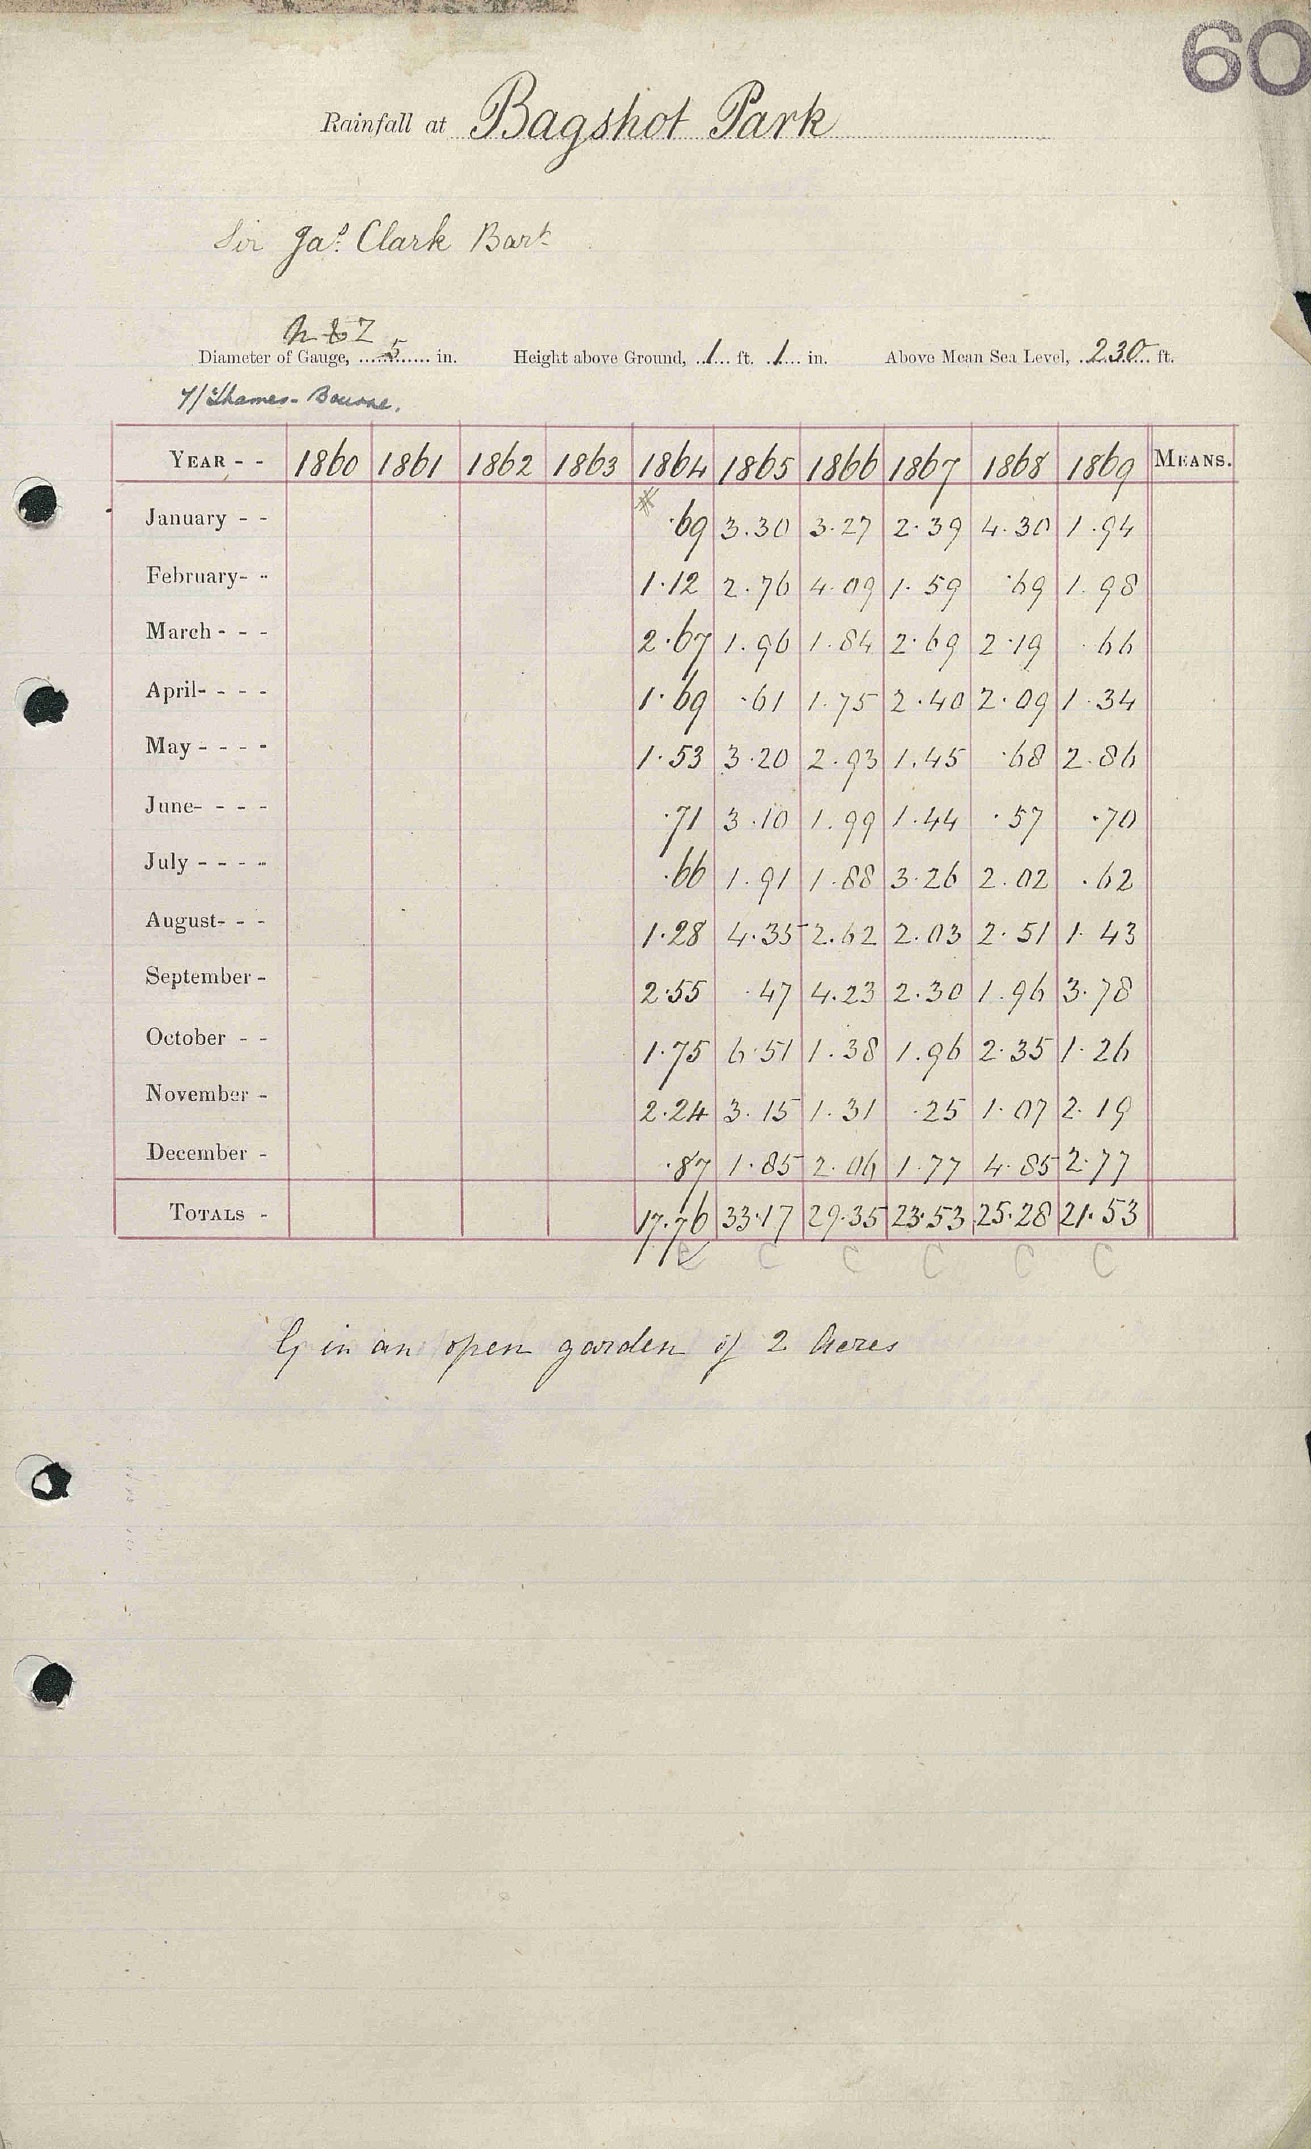 60
Rainfall at Bagshot Park
Sir Jas. Clark Bart
N & Z
Diameter of Gauge, 5 in. Height above Ground, 1 ft. 1 in. Above Mean Sea Level, 230 ft.
7/Thames - Bourne.
YEAR - - 1860 1861 1862 1863 1864 1865 1866 1867 1868 1869 MEANS.
January - - * .69 3.30 3.27 2.39 4.30 1.94
February- - 1.12 2.76 4.09 1.59 .69 1.98
March - - - 2.67 1.96 1.84 2.69 2.19 .66
April- - - - 1.69 .61 1.75 2.40 2.09 1.34
May - - - - 1.53 3.20 2.93 1.45 .68 2.86
June- - - - .71 3.10 1.99 1.44 .57 .70
July - - - - .66 1.91 1.88 3.26 2.02 .62
August- - - 1.28 4.35 2.62 2.03 2.51 1.43
September - 2.55 .47 4.23 2.30 1.96 3.78
October - - 1.75 6.51 1.38 1.96 2.35 1.26
November - 2.24 3.15 1.31 .25 1.07 2.19
December - .87 1.85 2.06 1.77 4.85 2.77
TOTALS - 17.76 33.17 29.35 23.53 25.28 21.53
C C C C C C
G in an open garden of 2 Acres